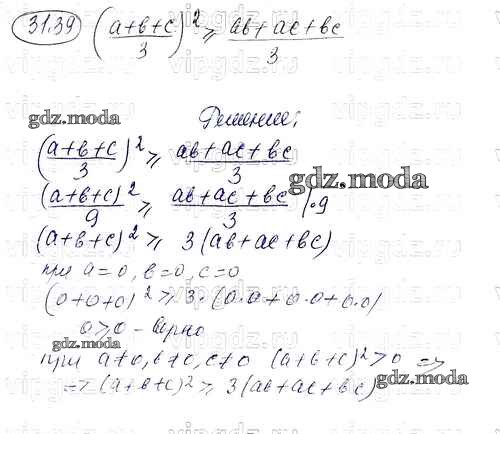 31.39 ((a+b+c)/3)² ≥ (ab+ac+bc)/3
gdz.moda
Решение:
((a+b+c)/3)² ≥ (ab+ac+bc)/3
gdz.moda
(a+b+c)²/9 ≥ (ab+ac+bc)/3 |·9
(a+b+c)² ≥ 3(ab+ac+bc)
при a=0, b=0, c=0
(0+0+0)² ≥ 3·(0·0+0·0+0·0)
0≥0 - верно
при a≠0, b≠0, c≠0 (a+b+c)²>0 =>
=> (a+b+c)² ≥ 3(ab+ac+bc)
gdz.moda